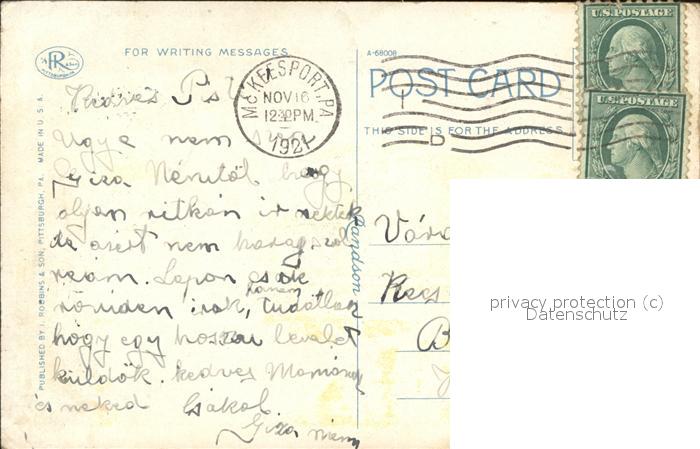 FOR WRITING MESSAGES
A-68008
POST CARD
THIS SIDE IS FOR THE ADDRESS
U.S. POSTAGE
U.S. POSTAGE
McKEESPORT, PA
NOV 16
12 30 PM
1921
PUBLISHED BY I. ROBBINS & SON, PITTSBURGH, PA. MADE IN U.S.A.
Kedves
Ugye nem
Giza Nénitől hogy
olyan ritkán ir nektek
de azért nem haragszol
reám. Lapon csak
röviden irok,
hogy egy hosszu levelet
küldök. kedves Mamának
és neked Csákol
Giza néni
Vár
Kecs
B
privacy protection (c)
Datenschutz